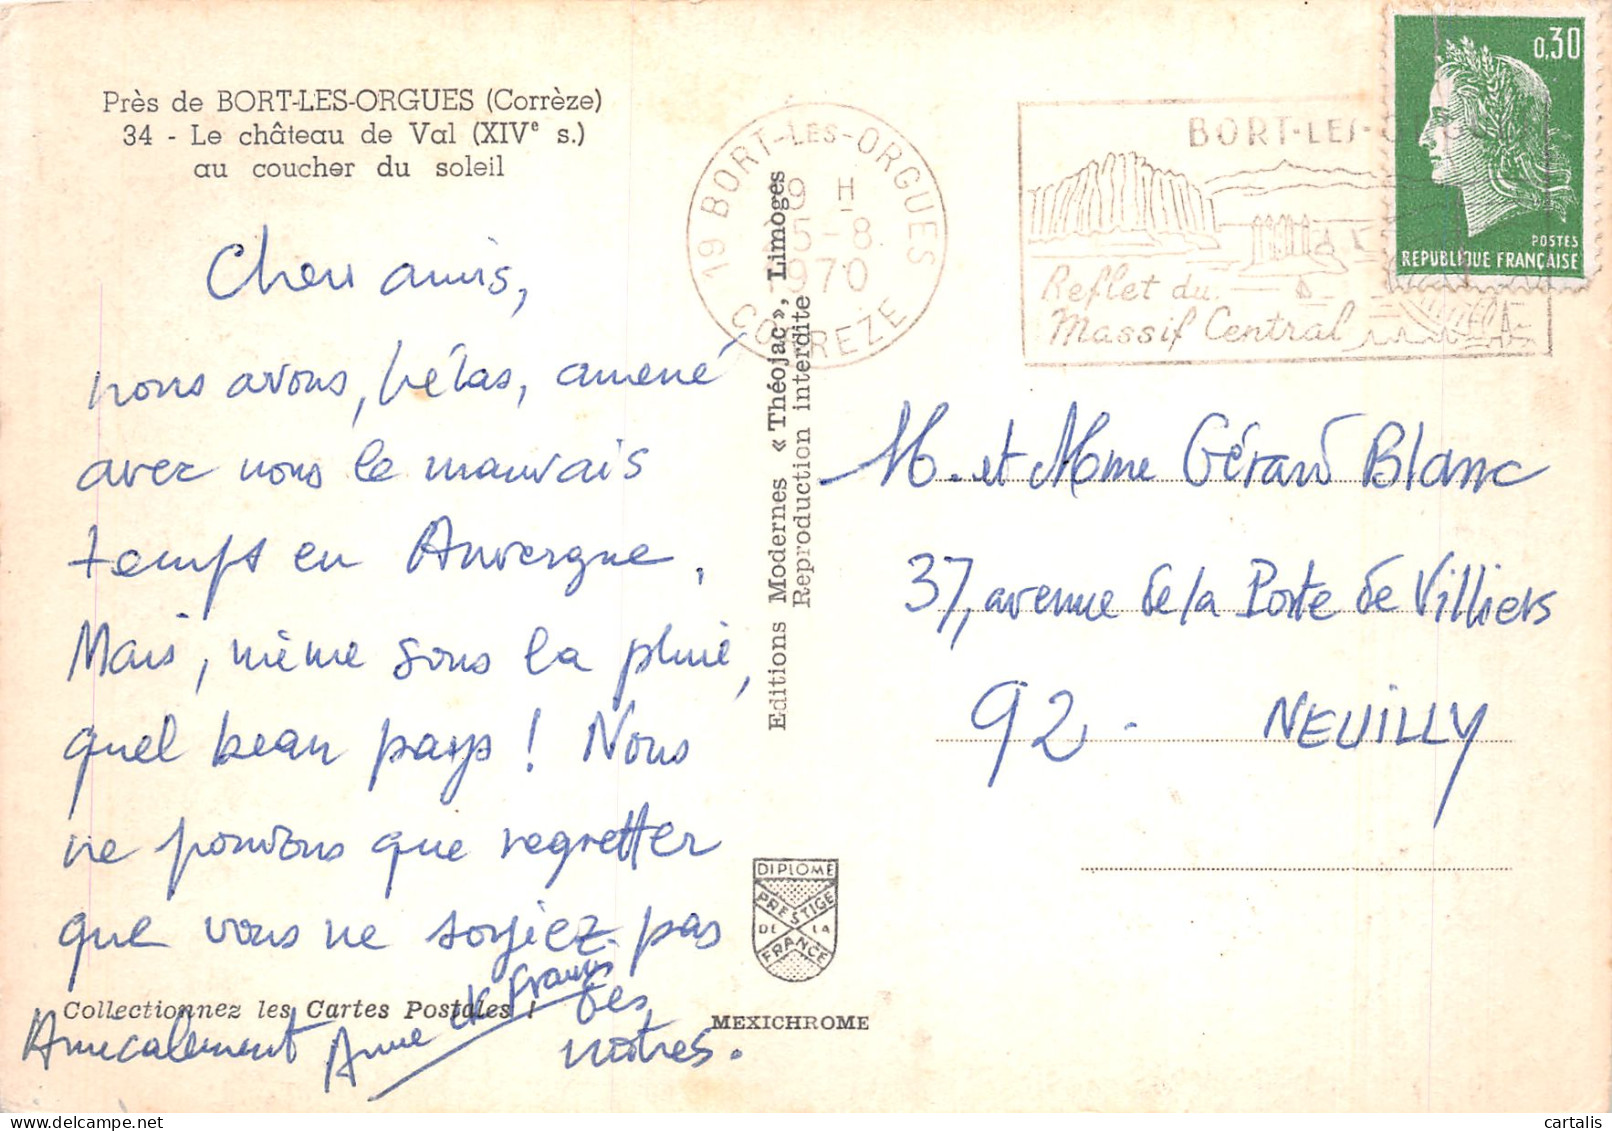 Près de BORT-LES-ORGUES (Corrèze)
34 - Le château de Val (XIVe s.)
au coucher du soleil
Chers amis,
nous avons, hélas, amené
avec nous le mauvais
temps en Auvergne.
Mais, même sous la pluie,
quel beau pays ! Nous
ne pouvons que regretter
que vous ne soyiez pas
des
nôtres.
Amicalement Anne et Francis
Collectionnez les Cartes Postales !
Editions Modernes « Théojac », Limoges
Reproduction interdite
DIPLOME
PRESTIGE
DE LA
FRANCE
MEXICHROME
19 BORT-LES-ORGUES
9 H
25-8
1970
CORREZE
BORT-LES-
Reflet du
Massif Central
0,30
POSTES
REPUBLIQUE FRANÇAISE
M. et Mme Gérard Blanc
37, avenue de la Porte de Villiers
92 - NEUILLY
cartalis